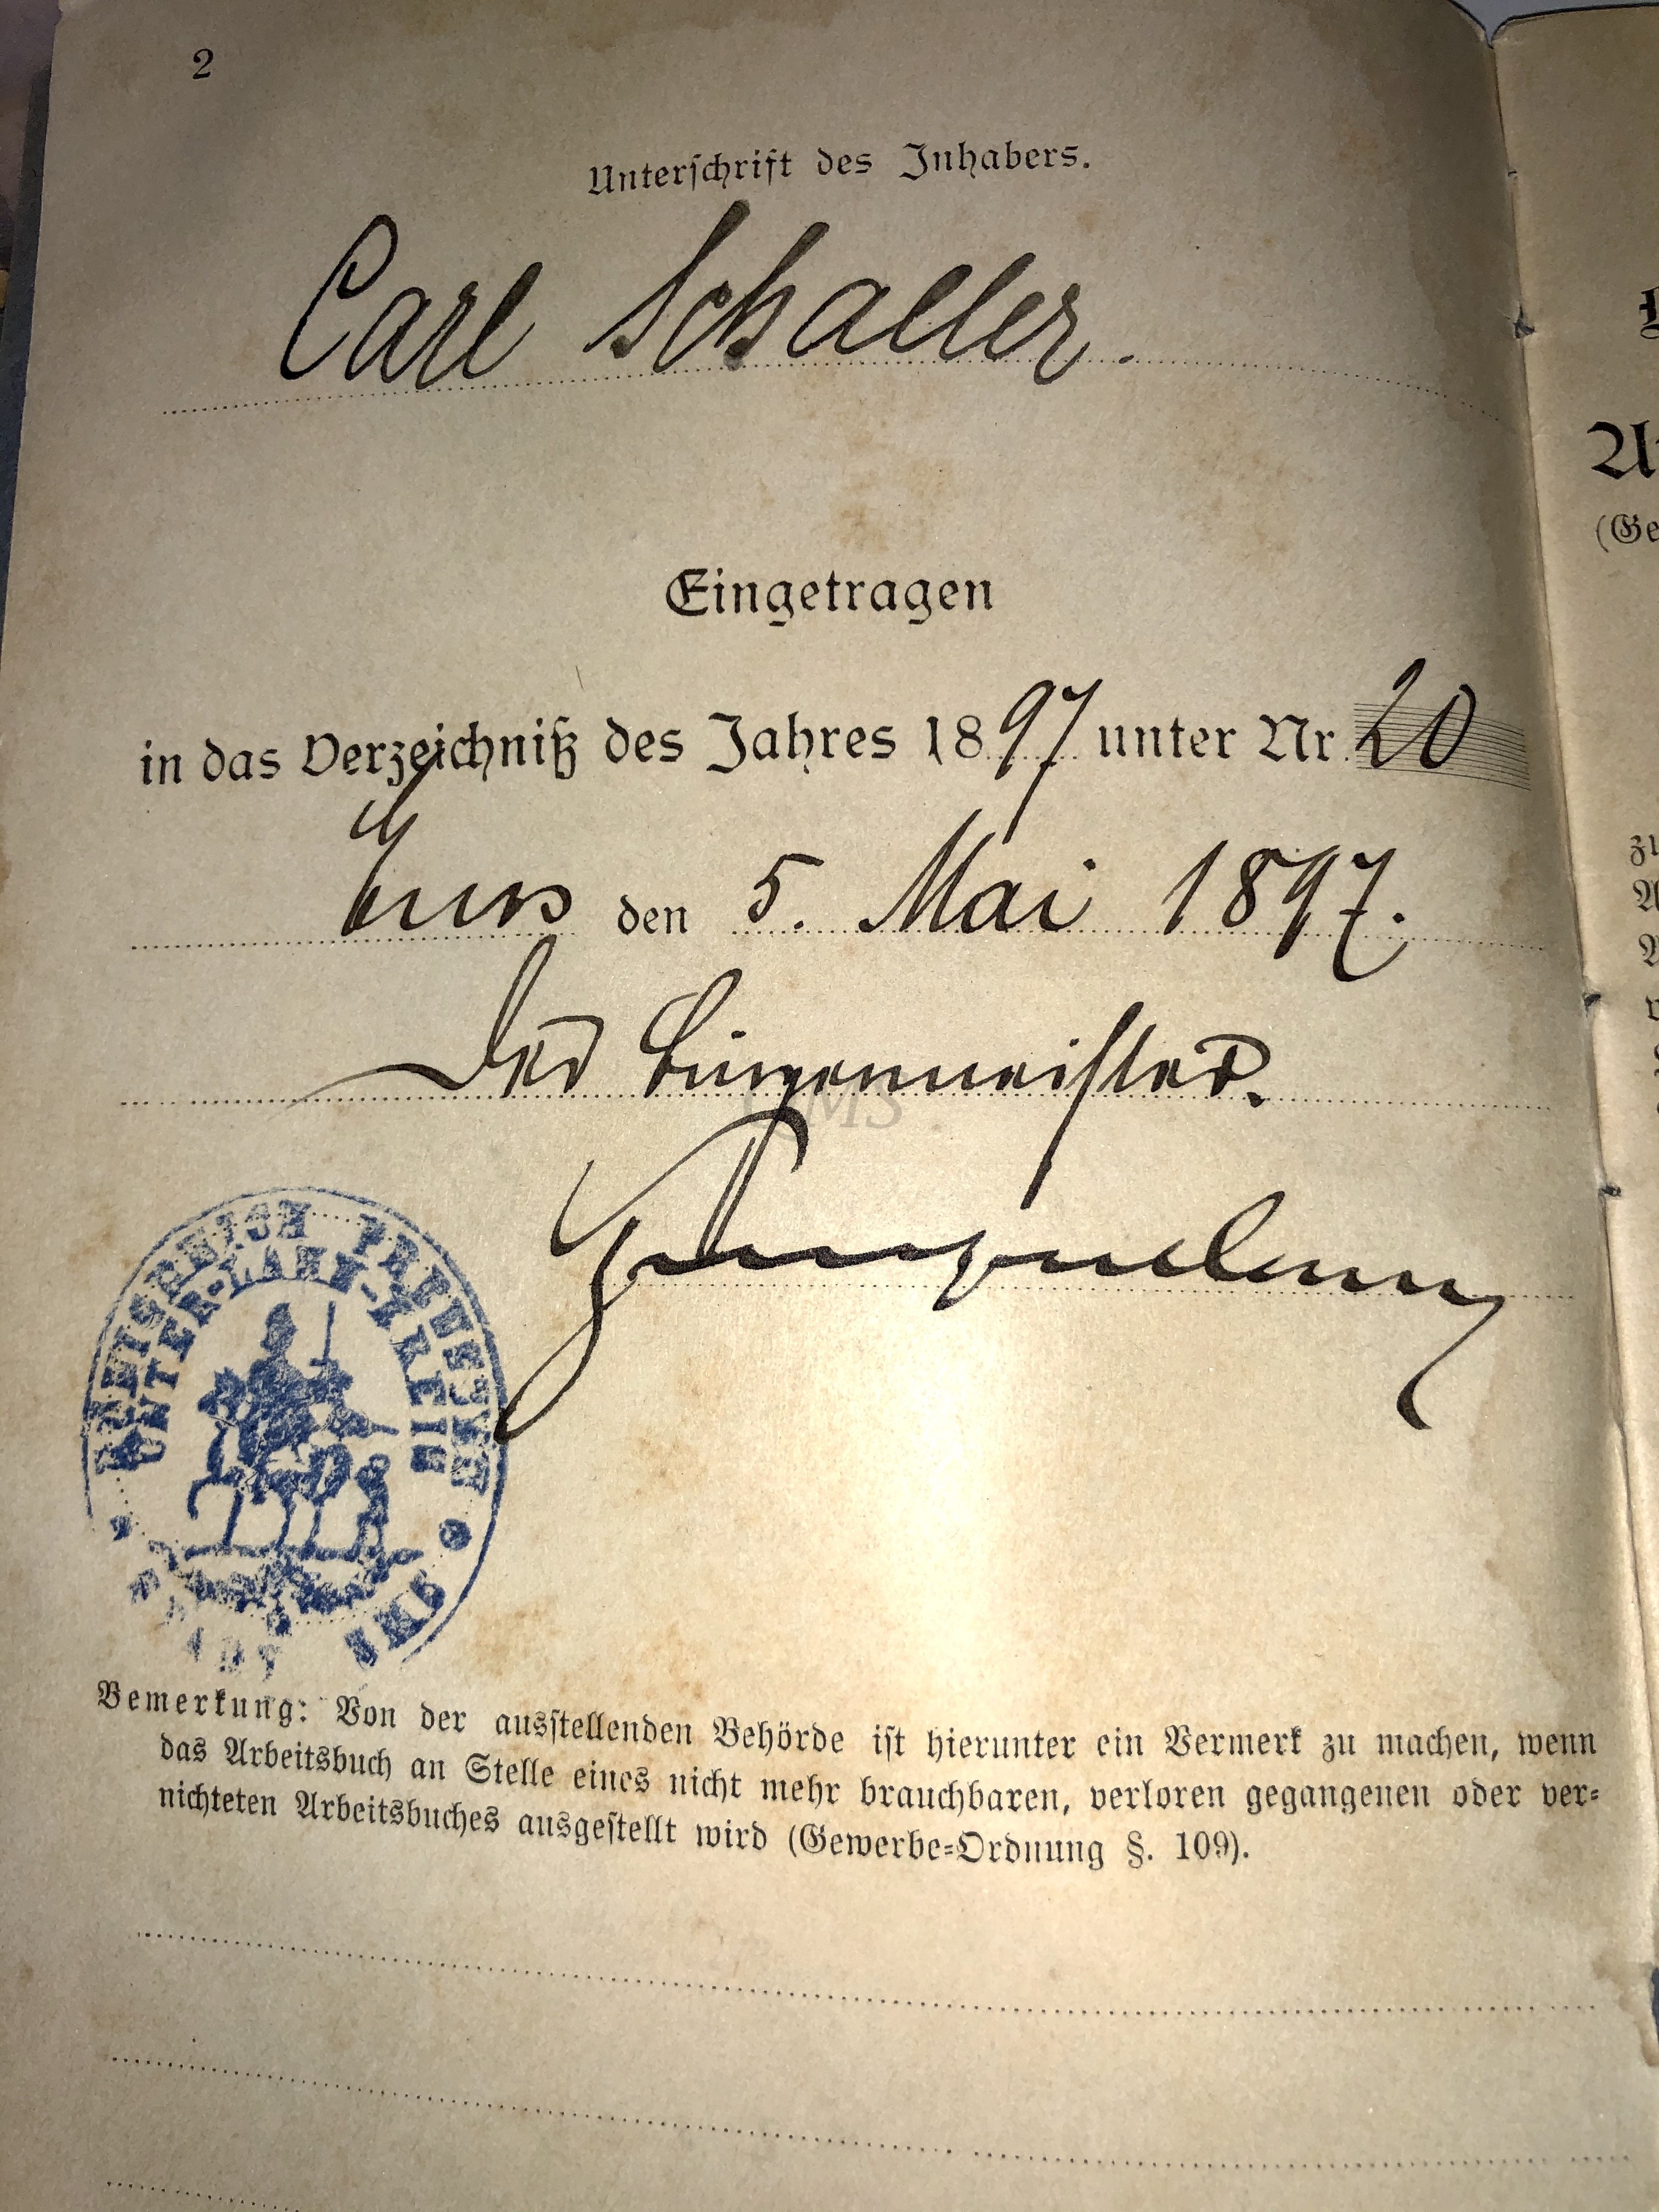 2
Unterschrift des Inhabers.
Carl Schaller.
Eingetragen
in das Verzeichniß des Jahres 1897 unter Nr. 20
Ems den 5. Mai 1897.
Der Bürgermeister.
KOENIGREICH PREUSSEN
UNTER-LAHN-KREIS
STADT EMS
Bemerkung: Von der ausstellenden Behörde ist hierunter ein Vermerk zu machen, wenn
das Arbeitsbuch an Stelle eines nicht mehr brauchbaren, verloren gegangenen oder ver-
nichteten Arbeitsbuches ausgestellt wird (Gewerbe-Ordnung §. 109).
(Ge